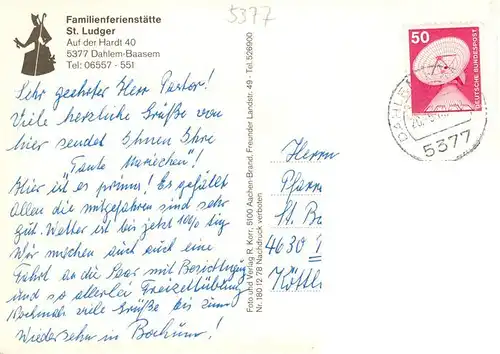 5377
Familienferienstätte
St. Ludger
Auf der Hardt 40
5377 Dahlem-Baasem
Tel: 06557 - 551
Sehr geehrter Herr Pastor!
Viele herzliche Grüße von
hier sendet Ihnen Ihre
"Tante Mariechen"!
Hier ist es prima! Es gefällt
Allen die mitgefahren sind sehr
gut. Wetter ist bis jetzt 100%tig
Wir machen auch auch eine
Fahrt an die Saar mit Besichtigung
und so allerlei Freizeit
Nochmals viele Grüße bis zum
Wiedersehn in Bochum!
Foto und Verlag R. Korr, 5100 Aachen-Brand, Freunder Landstr. 49 - Tel. 526900
Nr. 180 12 78 Nachdruck verboten
50
DEUTSCHE BUNDESPOST
DAHLEM
20.
5377
Herrn
Pfarr
St. Ba
4630 1